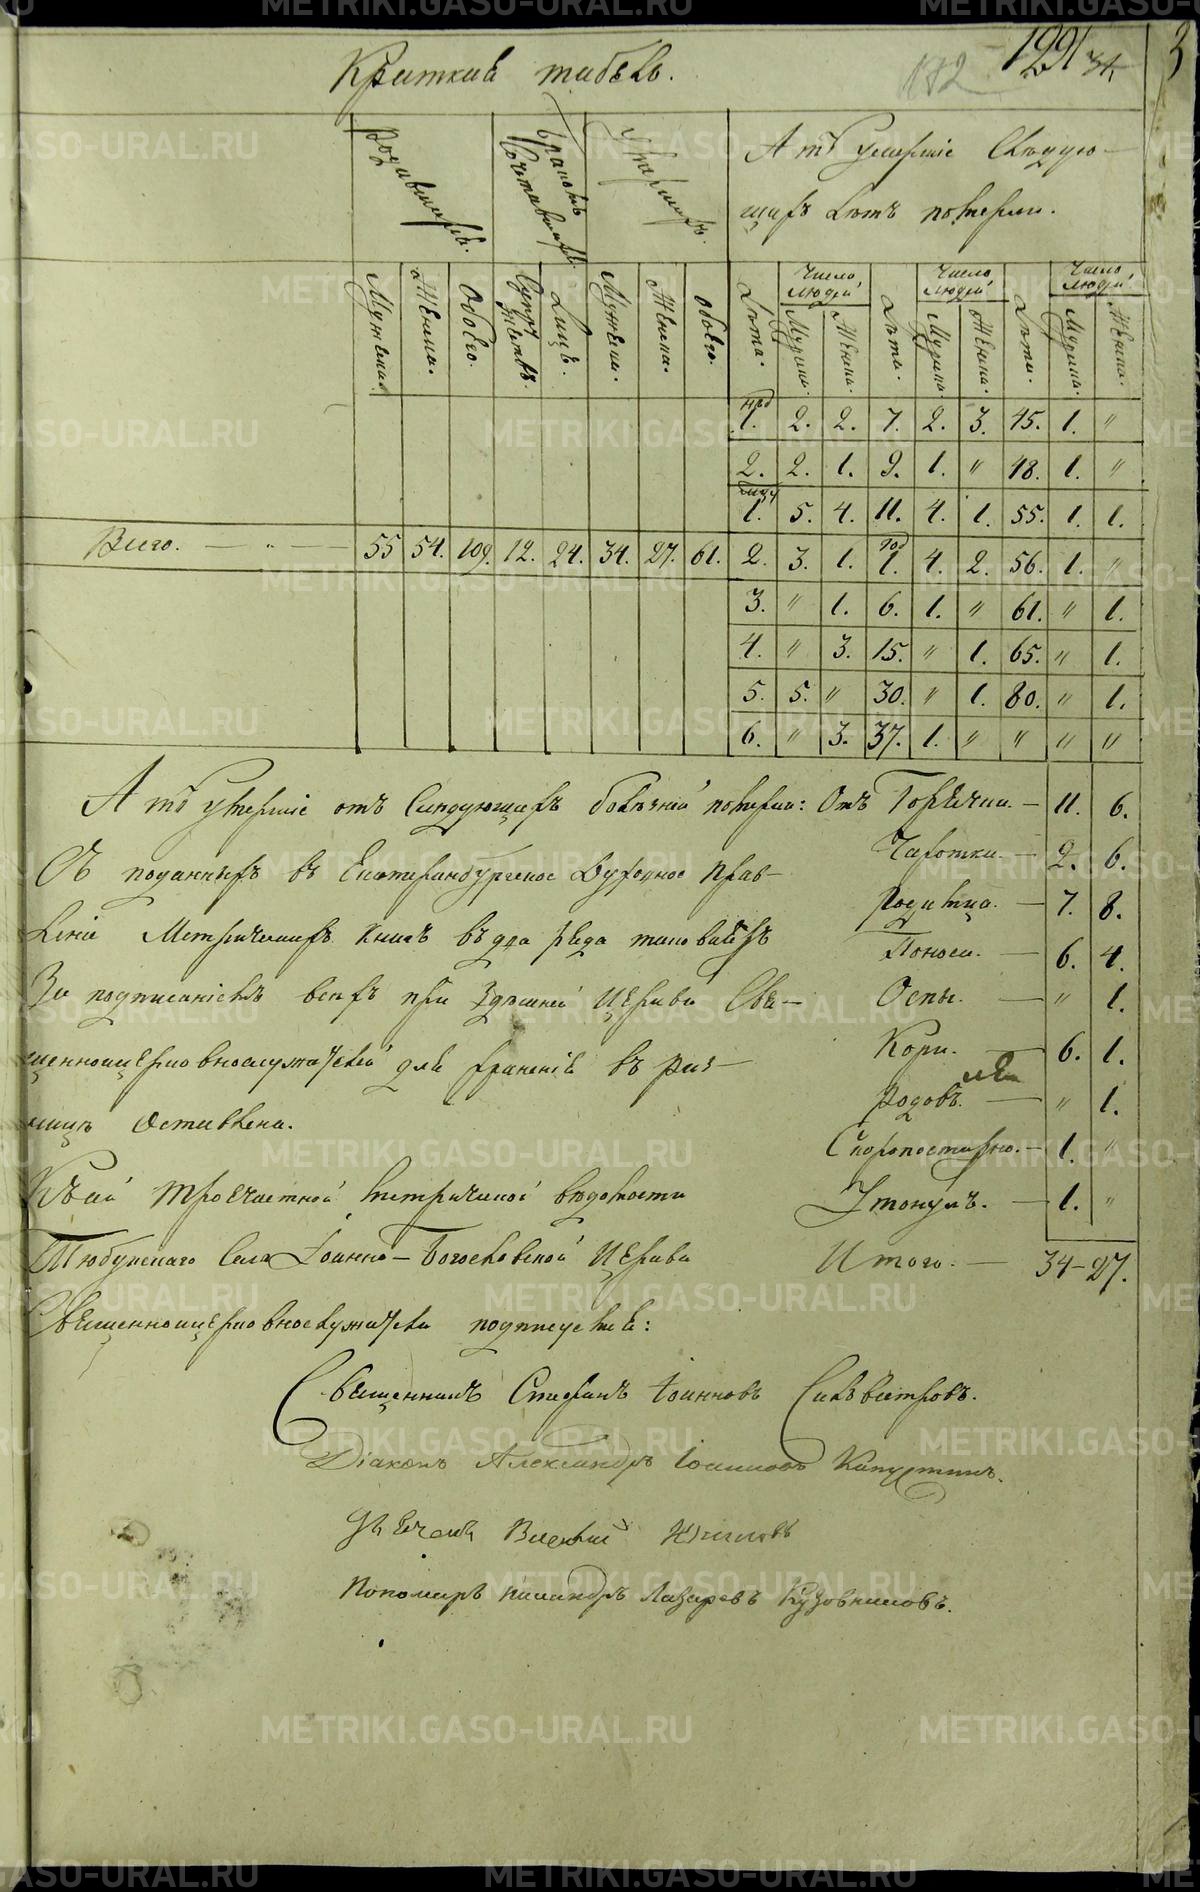 Краткий табель.
182 1221 34 3
Родившихся.
Бракомъ сочетавшихся.
Умершихъ.
А тѣ умершіе слѣдую-
щихъ лѣтъ померли.
Мужеска. Женска. Обоего. Супружествъ. Лицъ. Мужеска. Женска. Обоего. Лѣта. Число людей Мужеска. Женска. Лѣта. Число людей Мужеска. Женска. Лѣта. Число людей Мужеска. Женска.
нед
1. 2. 2. 7. 2. 3. 45. 1. "
2. 2. 1. 9. 1. " 48. 1. "
1. 5. 4. 11. 4. 1. 55. 1. 1.
Всего. — " — 55 54. 109. 12. 24. 34. 27. 61. 2. 3. 1. год 1. 4. 2. 56. 1. "
3. " 1. 6. 1. " 61. " 1.
4. " 3. 15. " 1. 65. " 1.
5. 5. " 30. " 1. 80. " 1.
6. " 3. 37. 1. " " " "
А тѣ умершіе отъ слѣдующихъ болѣзней померли: Отъ Горячки. — 11. 6.
Чахотки. — 2. 6.
Родимца. — 7. 8.
Поноса. — 6. 4.
Оспы. — " 1.
Кори. — 6. 1.
Родовъ. — " 1.
Скоропостижно. — 1. "
Утонулъ. — 1. "
Итого. — 34 — 27.
Съ поданныхъ въ Екатеринбургское Духовное Прав-
леніе Метрическихъ книгъ въ два ряда таковыхъ
За подписаніемъ всѣхъ при здѣшней Церкви Свя-
щенноцерковнослужителей для храненія въ риз-
ницѣ оставлена.
Къ сей троечастной метрической вѣдомости
Тюбукскаго села Іоанно-Богословской Церкви
Священноцерковнослужители подписуемся:
Священникъ Стефанъ Іоанновъ Сильвестровъ.
Діаконъ Александръ Іоанновъ Капустинъ.
Дьячекъ Василій
Пономарь Никандръ Лазаревъ Кузовниковъ.
METRIKI.GASO-URAL.RU